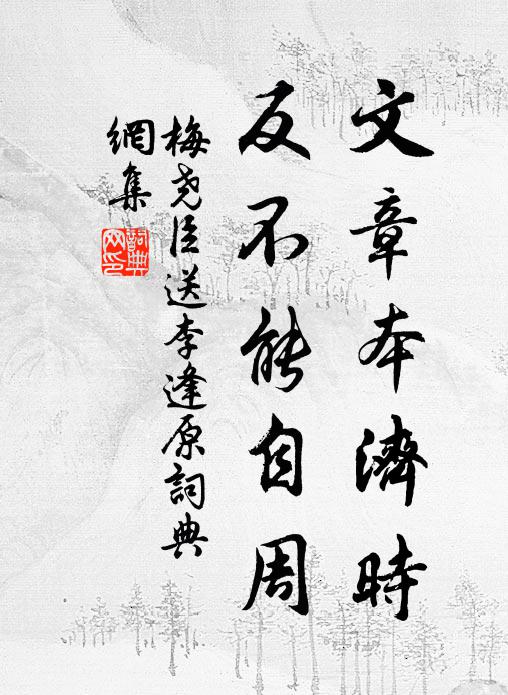 文章本濟時
反不能自周
梅尧臣送李逢原詞典
網集
詞典
网印